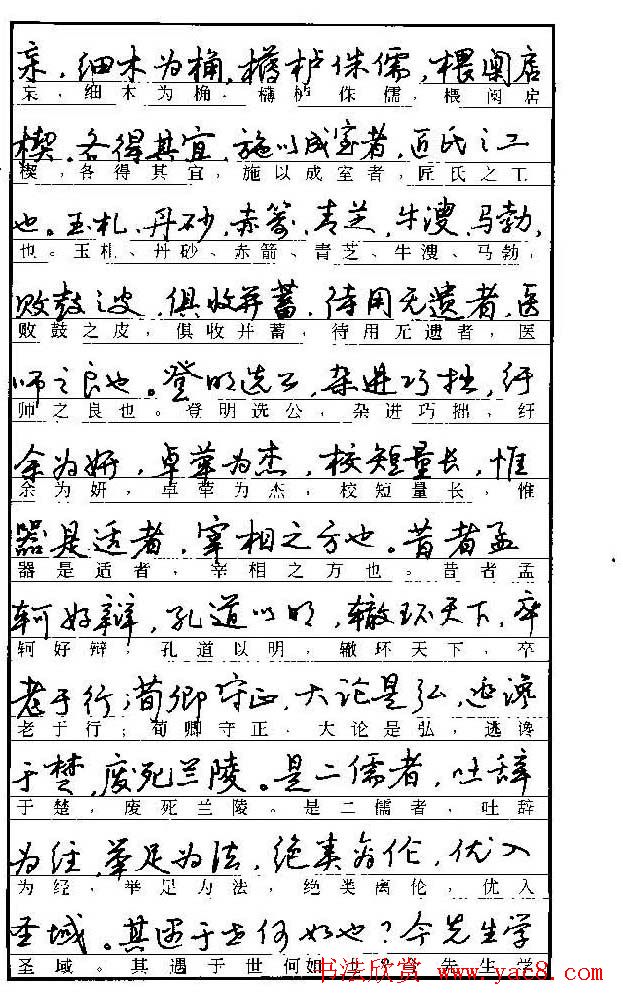 杗，细木为桷，欂栌侏儒，椳闑扂
杗，细木为桷，欂栌侏儒，椳闑扂
楔，各得其宜，施以成室者，匠氏之工
楔，各得其宜，施以成室者，匠氏之工
也。玉札、丹砂、赤箭、青芝、牛溲、马勃，
也。玉札、丹砂、赤箭、青芝、牛溲、马勃，
败鼓之皮，俱收并蓄，待用无遗者，医
败鼓之皮，俱收并蓄，待用无遗者，医
师之良也。登明选公，杂进巧拙，纡
师之良也。登明选公，杂进巧拙，纡
余为妍，卓荦为杰，校短量长，惟
余为妍，卓荦为杰，校短量长，惟
器是适者，宰相之方也。昔者孟
器是适者，宰相之方也。昔者孟
轲好辩，孔道以明，辙环天下，卒
轲好辩，孔道以明，辙环天下，卒
老于行；荀卿守正，大论是弘，逃谗
老于行；荀卿守正，大论是弘，逃谗
于楚，废死兰陵。是二儒者，吐辞
于楚，废死兰陵。是二儒者，吐辞
为经，举足为法，绝类离伦，优入
为经，举足为法，绝类离伦，优入
圣域。其遇于世何如也？今先生学
圣域。其遇于世何如也？今先生学
书法欣赏 www.yac8.com